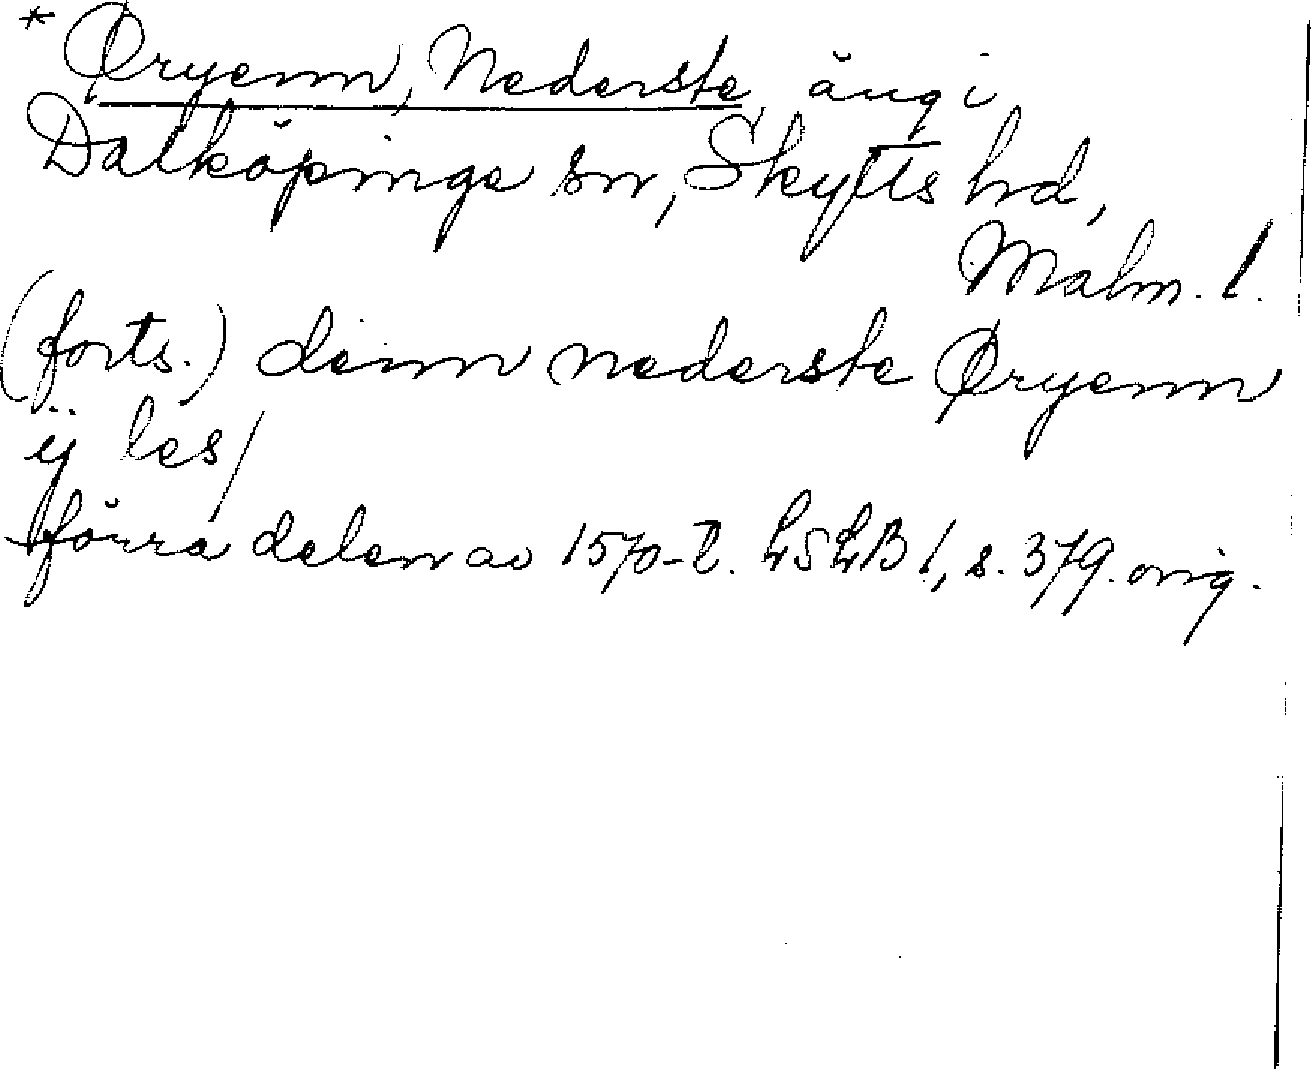 * Øryenn, Nederste, äng i
Dalköpinge sn, Skytts hd,
Malm. l.
(forts.) denn nederste Øryenn
ij les/
förra delen av 1570-t. LSLB 1, s. 379. orig.